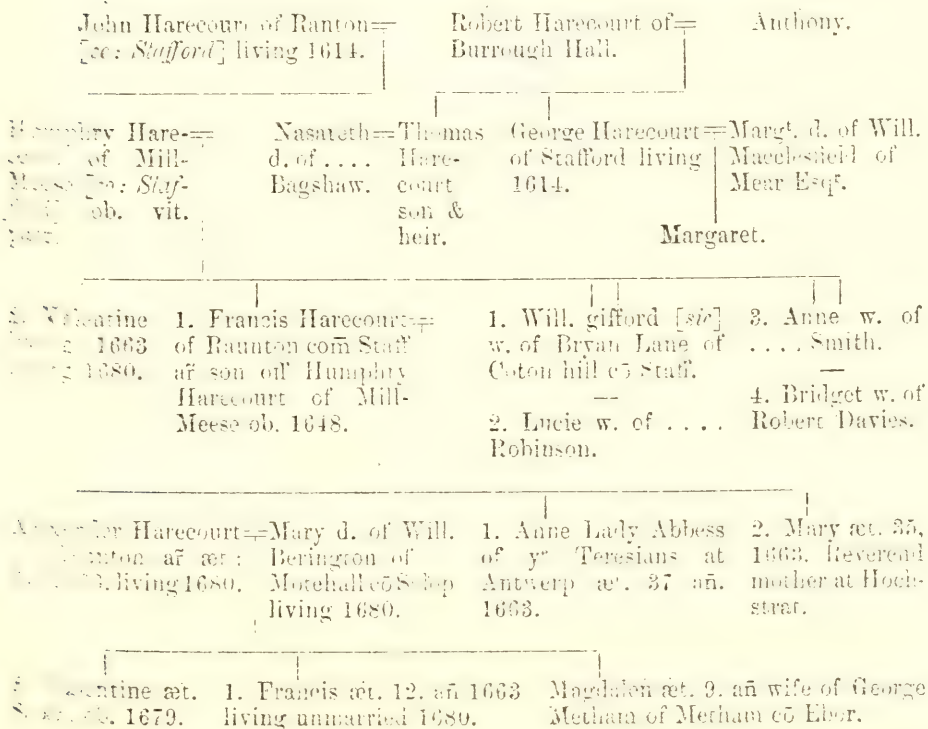 John Harecourt of Ranton=
[co: Stafford] living 1614.
Robert Harecourt of=
Burrough Hall.
Anthony.
Hare-=
of Mill-
Meese [co: Staf-
ob. vit.
Nasareth=Thomas
d. of .... Hare-
Bagshaw. court
son &
heir.
George Harecourt=Margt. d. of Will.
of Stafford living Macclesfield of
1614. Mear Esqr.
Margaret.
1663
1680.
1. Francis Harecourt=
of Raunton com̄ Staff
ar̄ son off Humphry
Harecourt of Mill-
Meese ob. 1648.
1. Will. gifford [sic]
w. of Bryan Lane of
Coton hill cō Staff.
—
2. Lucie w. of ....
Robinson.
3. Anne w. of
.... Smith.
—
4. Bridget w. of
Robert Davies.
Harecourt=Mary d. of Will.
ar̄ æt: Berington of
living 1680. Motehall cō Salop
living 1680.
1. Anne Lady Abbess
of yr Teresians at
Antwerp æt. 37 an̄.
1663.
2. Mary æt. 35,
1663. Reverend
mother at Hoch-
strat.
æt.
1679.
1. Francis æt. 12. an̄ 1663
living unmarried 1680.
Magdalen æt. 9. an̄ wife of George
Metham of Metham cō Ebor.